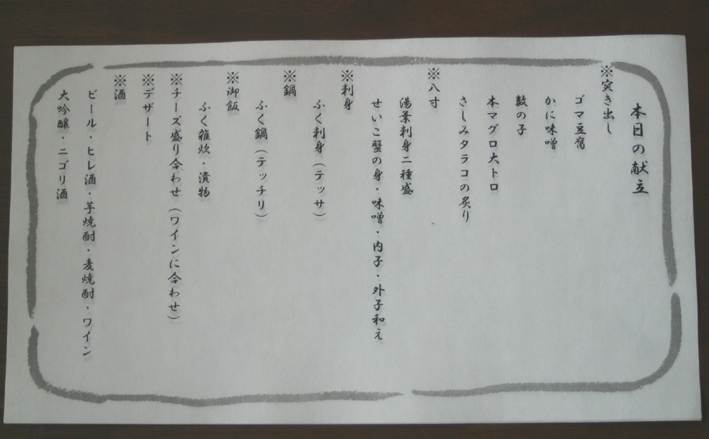 本日の献立
※突き出し
ゴマ豆腐
かに味噌
数の子
本マグロ大トロ
さしみタラコの炙り
※八寸
湯葉刺身二種盛
せいこ蟹の身・味噌・内子・外子和え
※刺身
ふく刺身（テッサ）
※鍋
ふく鍋（テッチリ）
※御飯
ふく雑炊・漬物
※チーズ盛り合わせ（ワインに合わせ）
※デザート
※酒
ビール・ヒレ酒・芋焼酎・麦焼酎・ワイン
大吟醸・ニゴリ酒